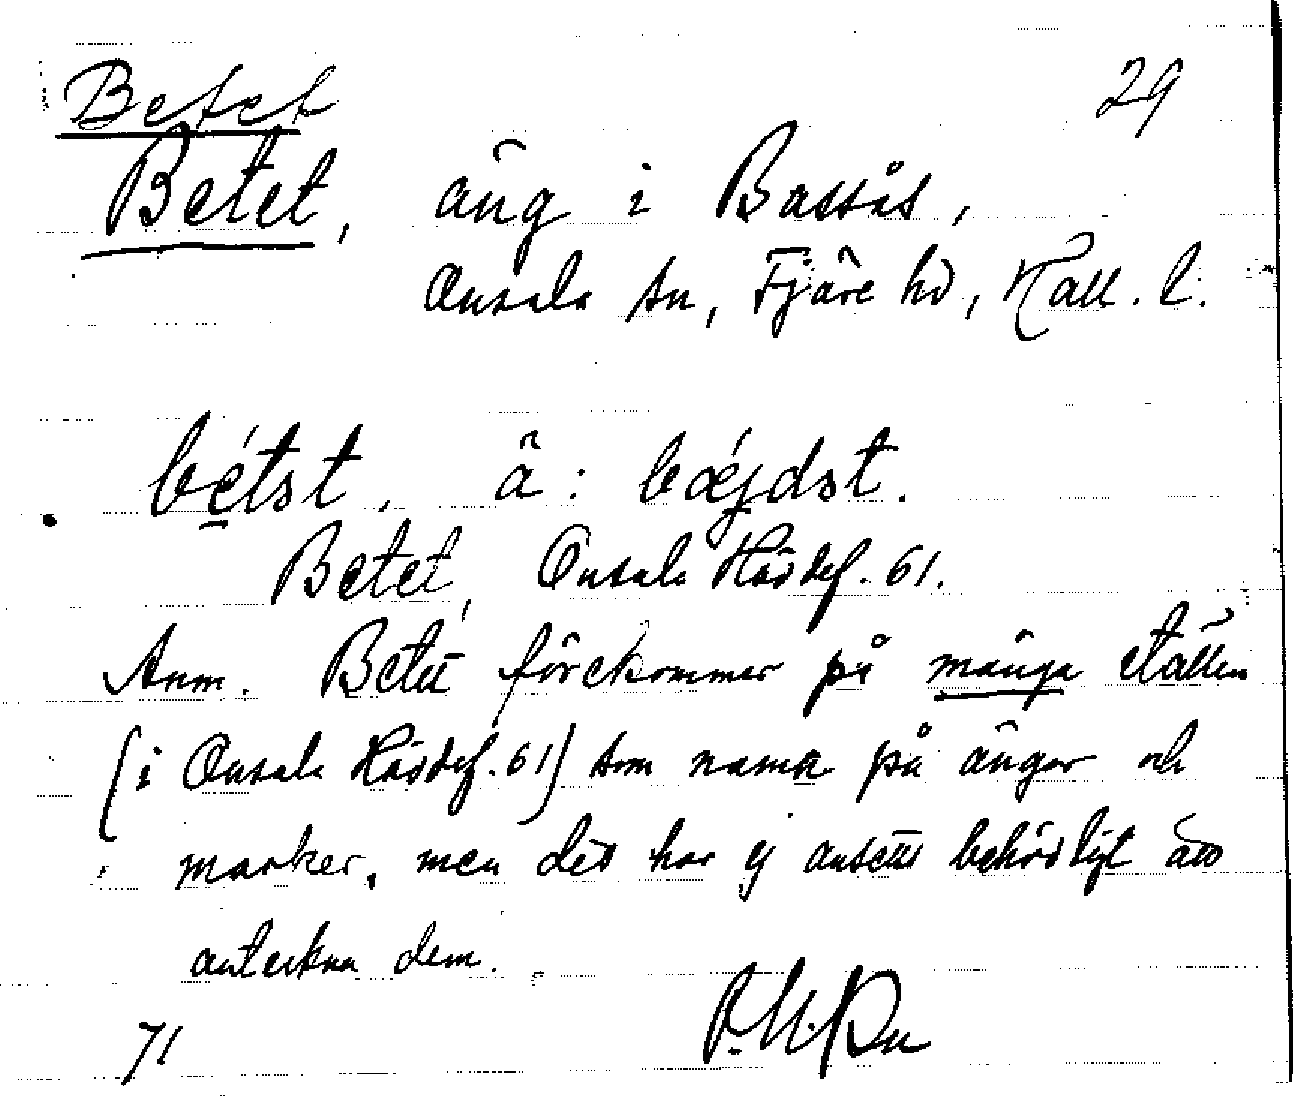 Betet 29
Betet, äng i Bassås,
Onsala sn, Fjäre hd, Hall. l.
bétst, ä: bǽjdst.
Betet, Onsala Hävdef. 61.
Anm. Betet förekommer på många ställen
(i Onsala Hävdef. 61) som namn på ängar och
marker, men det har ej ansetts behövligt att
anteckna dem.
71